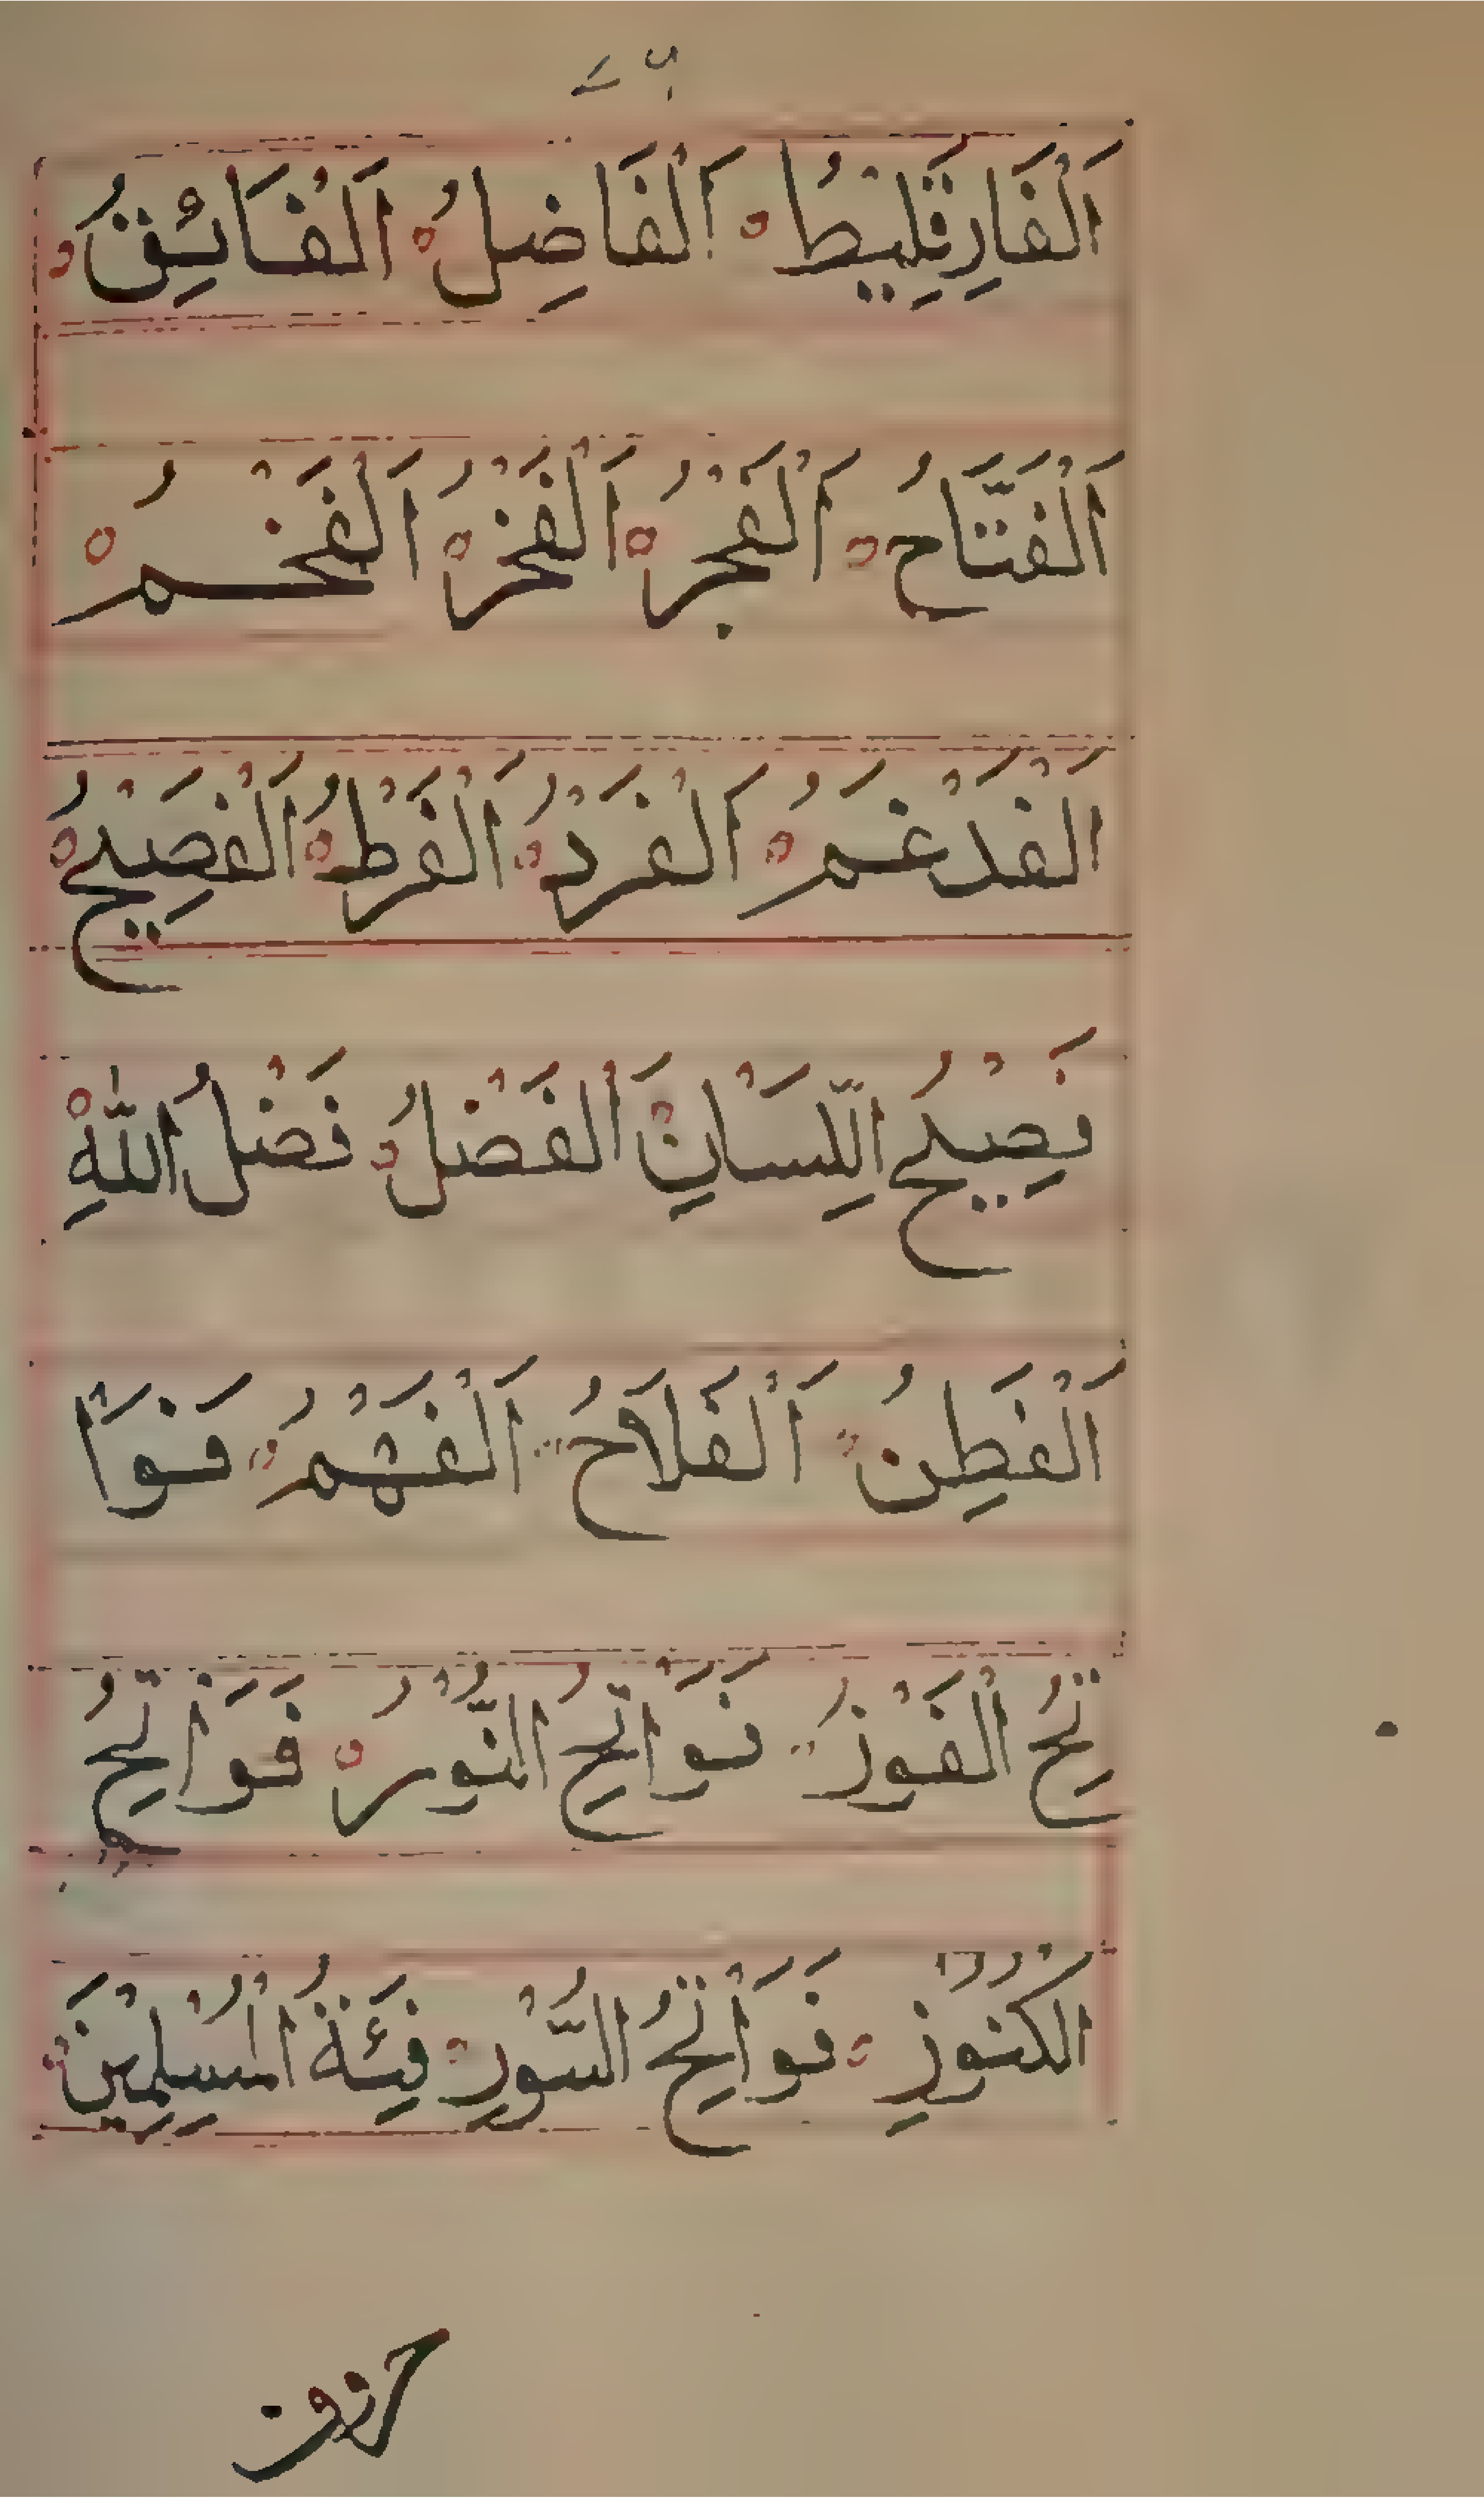 اَلْفَارِقَلِيْطُ اَلْفَاضِلُ اَلْفَائِقُ
اَلْفَتَّاحُ اَلْفَجْرُ اَلْفَخْرُ اَلْفَخْمُ
اَلْفَدْغَمُ اَلْفَرْدُ اَلْفَرْطُ اَلْفَصِيْحُ
فَصِيْحُ اللِّسَانِ اَلْفَضْلُ فَضْلُ اللّٰهِ
اَلْفَطِنُ اَلْفَلَاحُ اَلْفَهْمُ فَوَا
تِحُ الْفَوْزُ فَوَاتِحُ النُّوْرُ فَوَاتِحُ
الْكُنُوْزِ فَوَاتِحُ السُّوَرِ فِئَةُ الْمُسْلِمِيْنَ
حرف